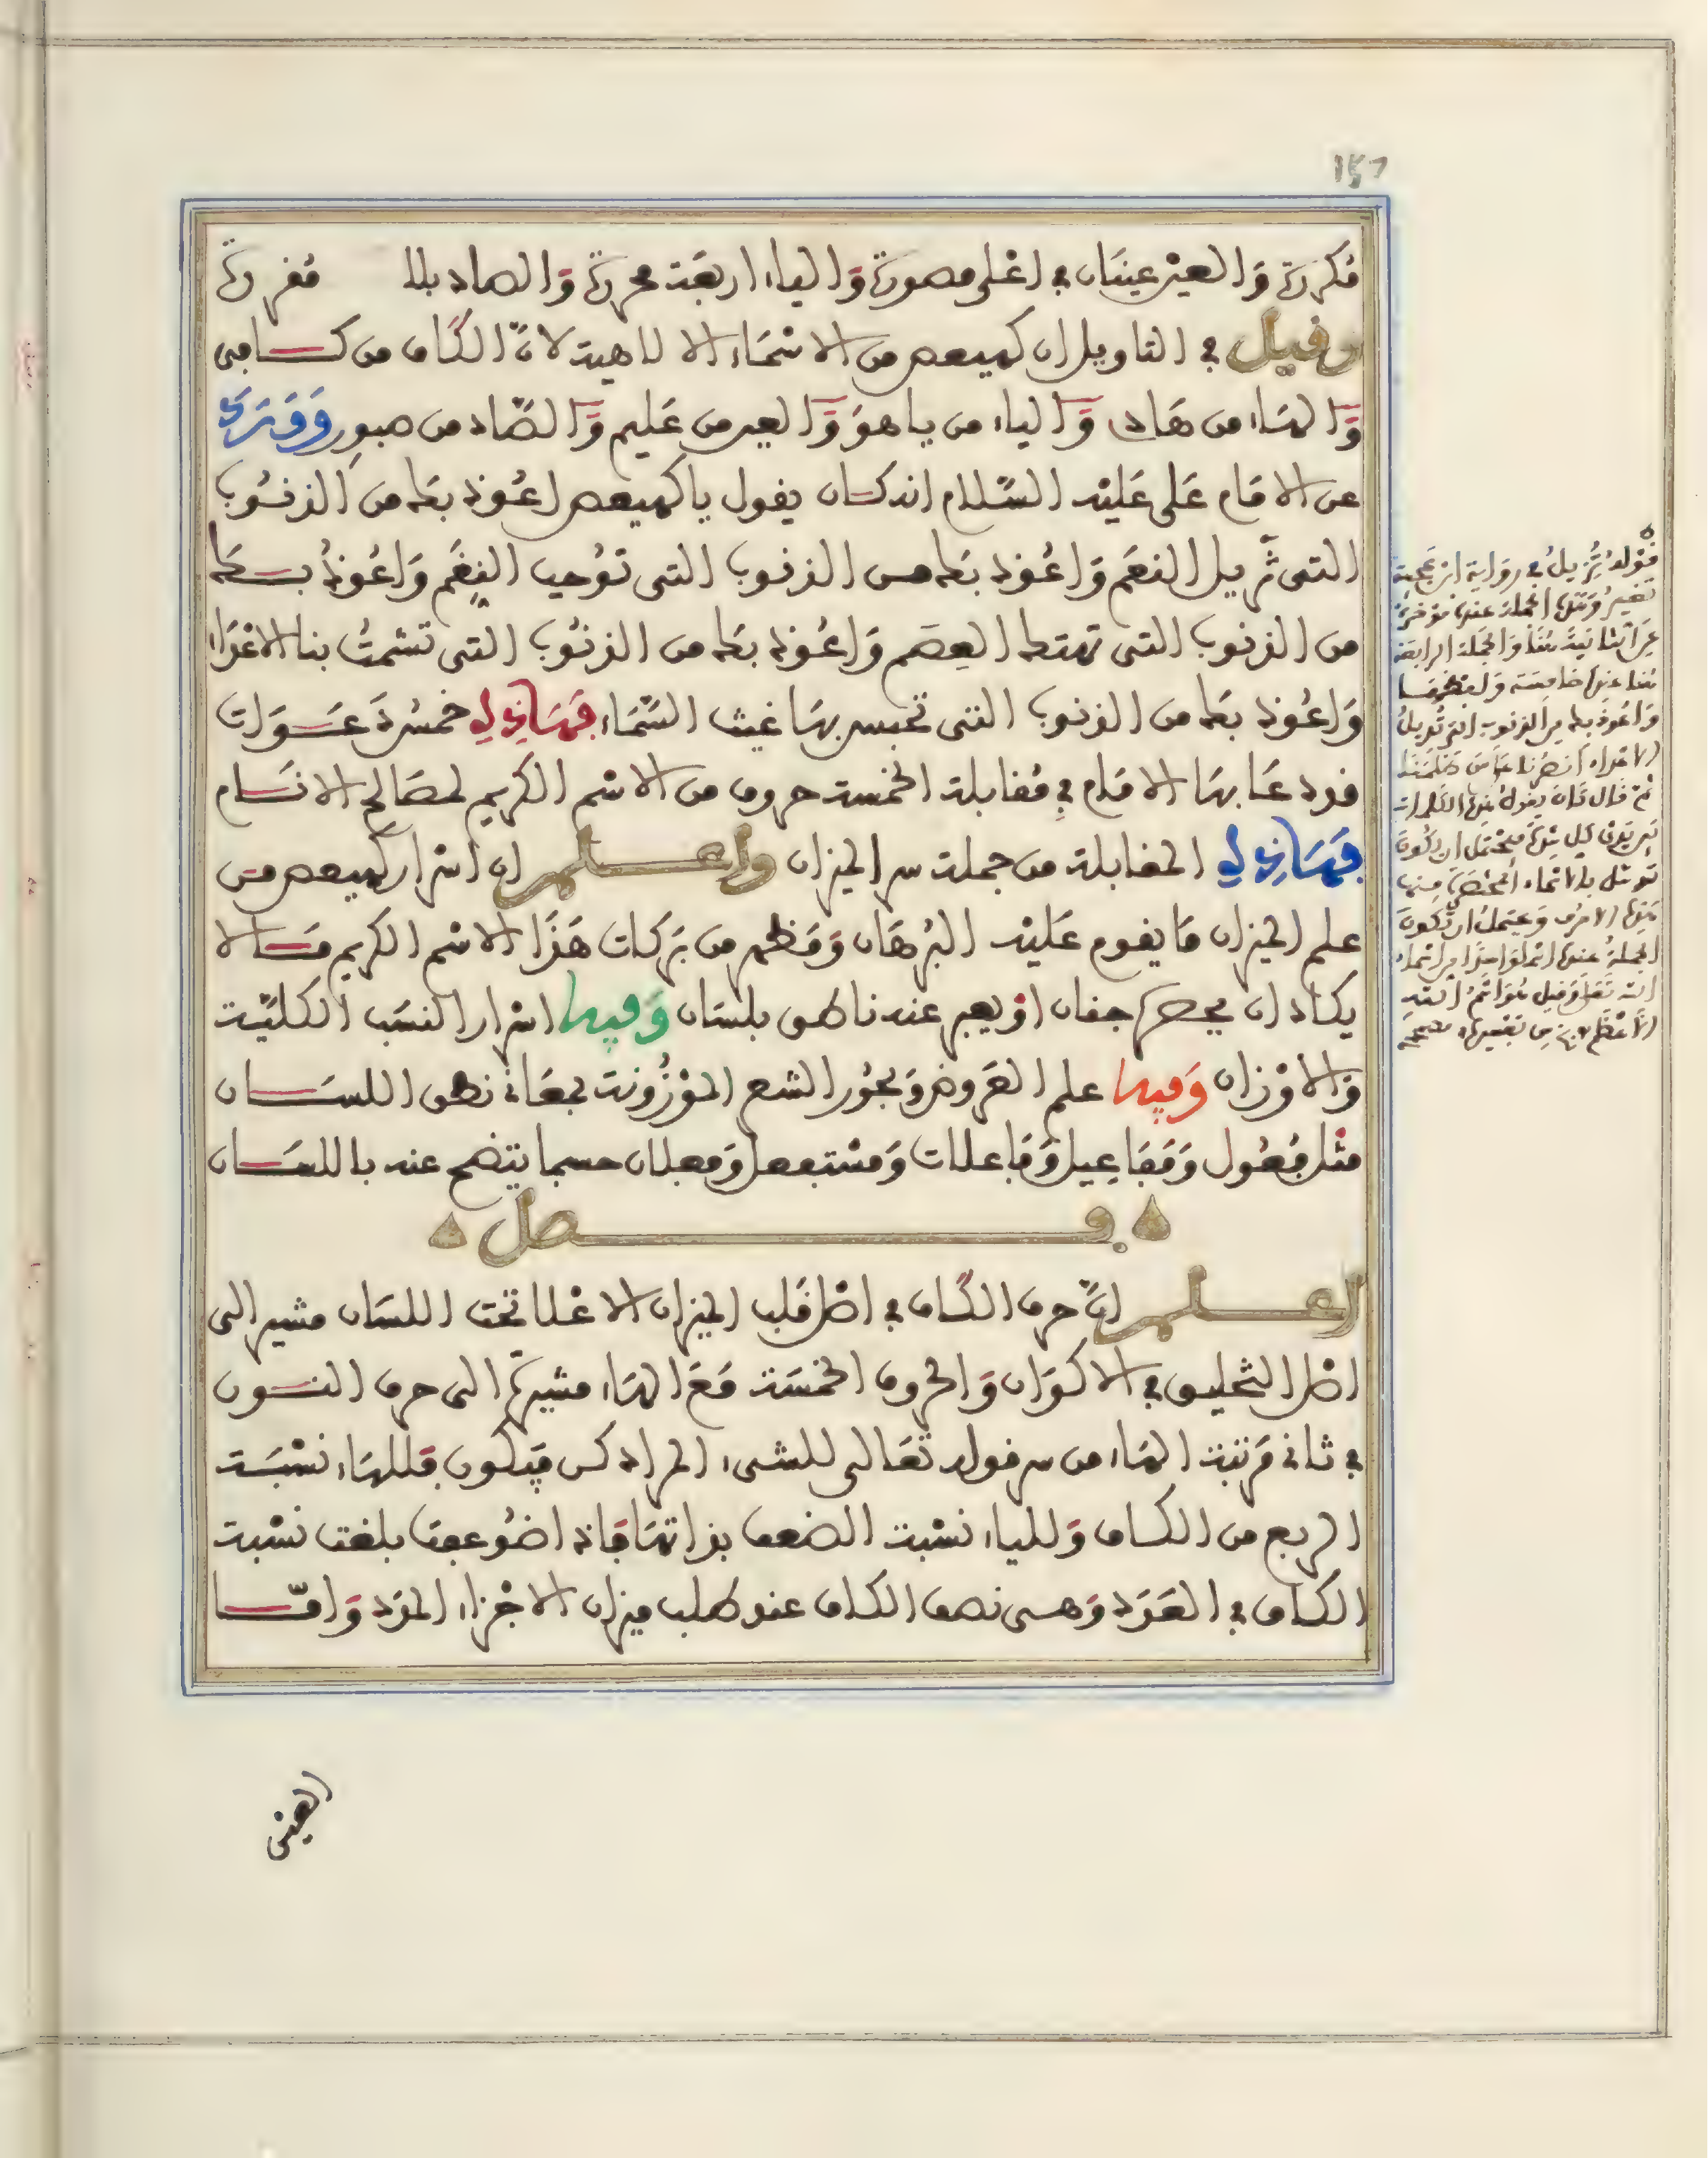 مكررة والعين عينان في اعلى مصورة والياء اربعة محررة والصاد بلا مغررة
وقيل في التاويل ان كهيعص من الاسماء الالاهية لان الكاف من كافي
والهاء من هاد والياء من يا هو والعين من عليم والصاد من صبور وورد
عن الامام علي عليه السلام انه كان يقول يا كهيعص اعوذ بك من الذنوب
التي تزيل النعم واعوذ بك من الذنوب التي توجب النقم واعوذ بك
من الذنوب التي تهتك العصم واعوذ بك من الذنوب التي تشمت بنا الاعداء
واعوذ بك من الذنوب التي تحبس بها غيث السماء فهاذه خمسة دعوات
قد دعا بها الامام في مقابلة الخمسة حروف من الاسم الكريم لمصالح الانام
فهاذه المقابلة من جملة سر الميزان واعلم ان اسرار كهيعص من
علم الميزان ما يقوم عليه البرهان ومظهر من بركات هذا الاسم الكريم ما لا
يكاد ان يحصر جفان او يعبر عنه ناطق بلسان وفيها اسرار النسب الكلية
والاوزان وفيها علم العروض وبحور الشعر الموزونة بمعاني نطق اللسان
مثل فعول ومفاعيل وفاعلات ومستفعل وفعلان حسبما يتضح عنه باللسان
فصل
اعلم ان حرف الكاف في اصل قلب الميزان الاعلا تحت اللسان مشير الى
اصل التخليق في الاكوان والحروف الخمسة مع الهاء مشيرة الى حرف النون
في ثاني مرتبة الهاء من سر قوله تعالى للشيء المراد كن فيكون فللهاء نسبة
الربع من الكاف وللياء نسبة الضعف بذاتها فاذا ضوعفت بلغت نسبة
الكاف في العدد وهي نصف الكاف عند طلب ميزان الاجزاء المود واما
العين
قوله تزيل في رواية
تغير وتلك الجملة عنده مؤخرة
عن الثانية هنا والجملة الرابعة
هنا عنده خامسة ولفظها
واعوذ بك من الذنوب التي تديل
الاعداء انصرنا على من ظلمنا
ثم قال كان يقول هذه الكلمات
بين يدي كل شدة فيحتمل ان يكون
توسل بالاسماء المختصر منها
هذه الاحرف ويحتمل ان تكون
الجملة عنده اسما واحدا من اسماء
الله تعالى وقيل هو اسم الله
الاعظم